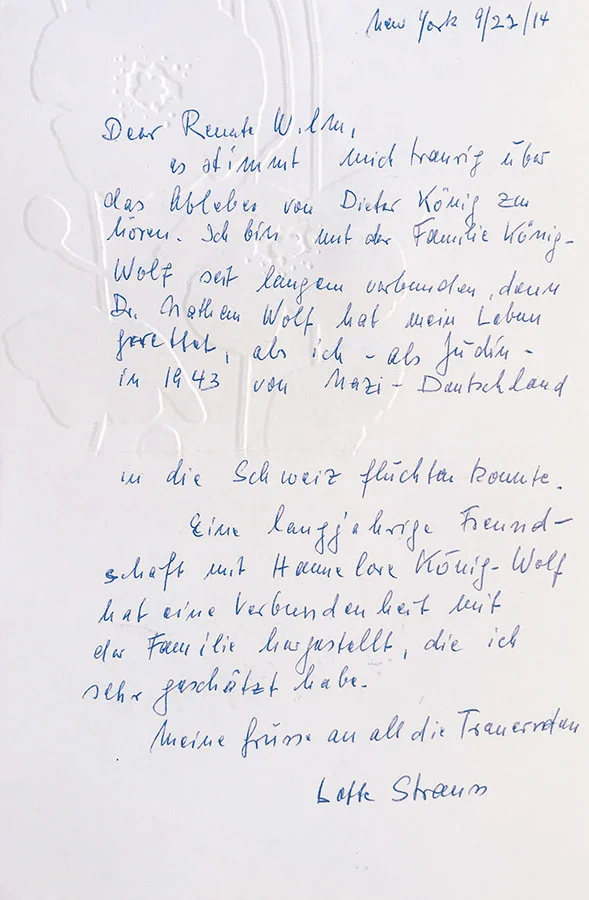 New York 9/23/14
Dear Renate Wilm,
es stimmt mich traurig über
das Ableben von Dieter König zu
hören. Ich bin mit der Familie König-
Wolf seit langem verbunden, denn
Dr. Nathan Wolf hat mein Leben
gerettet, als ich - als Jüdin -
in 1943 von Nazi-Deutschland
in die Schweiz flüchten konnte.
Eine langjährige Freund-
schaft mit Hannelore König-Wolf
hat eine Verbundenheit mit
der Familie hergestellt, die ich
sehr geschätzt habe.
Meine Grüsse an all die Trauernden
Lotte Strauss